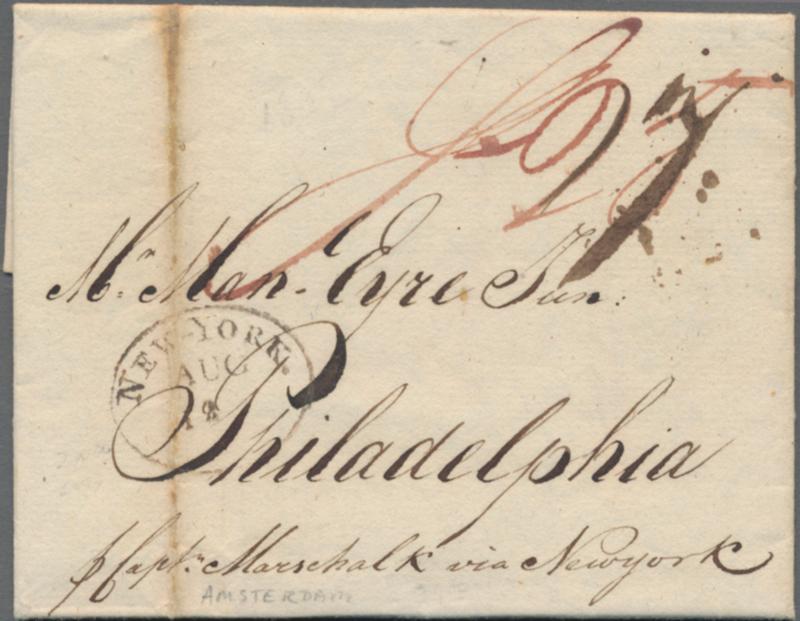 Mr. Man. Eyre Jun:
NEW-YORK.
AUG
Philadelphia
p Captn. Marschalk via Newyork
AMSTERDAM